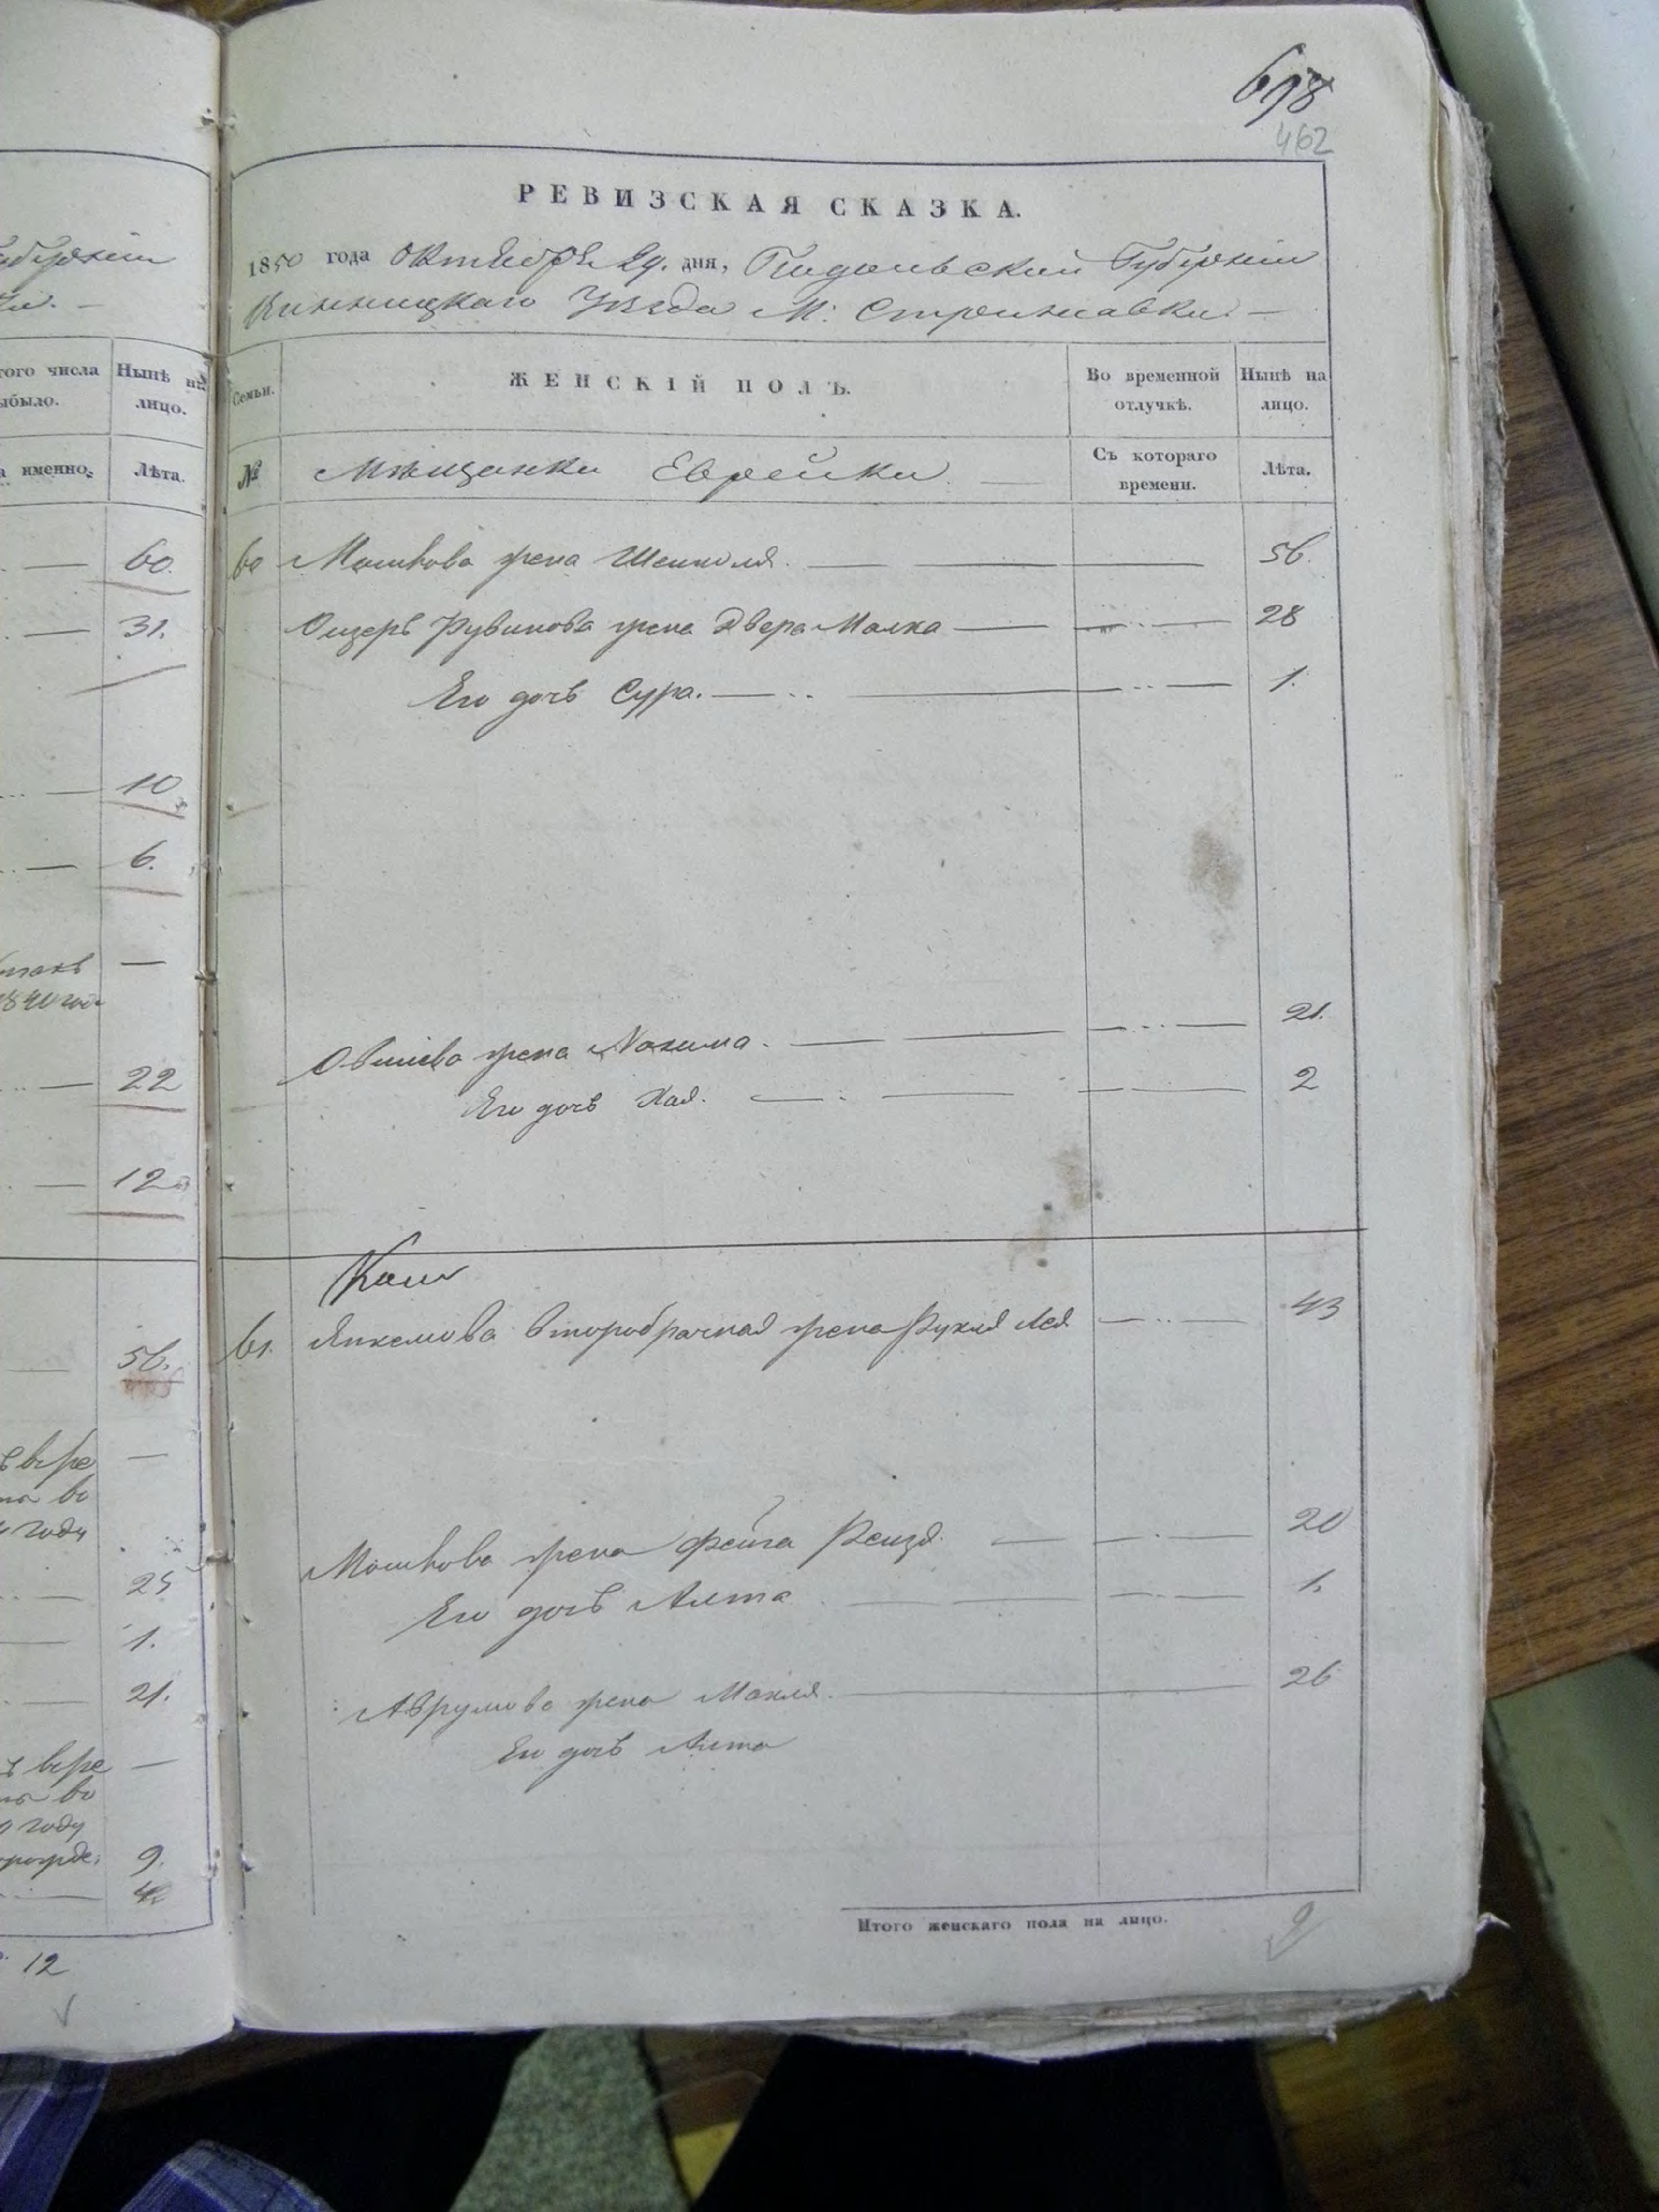 698
462
РЕВИЗСКАЯ СКАЗКА.
1850 года Октября 29. дня, Подольской Губернии
Винницкаго Уезда М: Стрижавки. —
того числа
было.
Нынѣ на
лицо.
а именно.
Лѣта.
Семьи.
ЖЕНСКІЙ ПОЛЪ.
Во временной
отлучкѣ.
Нынѣ на
лицо.
№
Мѣщанки Еврейки.
Съ котораго
времени.
Лѣта.
60.
60 Мошкова жена 56.
31.
Рувинова жена Двера Малка 28
Его дочь Сура. 1.
10
6.
1840 года
22
Овшиева жена Нахима. 21.
Его дочь Хая. 2
12
61. Янкелиова второбрачная жена Рухля Лея 43
56.
во
году
25
Мошкова жена Фейга Рейзя. 20
1.
Его дочь Алта 1.
21.
Аврумова жена Махля. 26
Его дочь Алта
во
году
9.
4.
Итого женскаго пола на лицо. 9
12